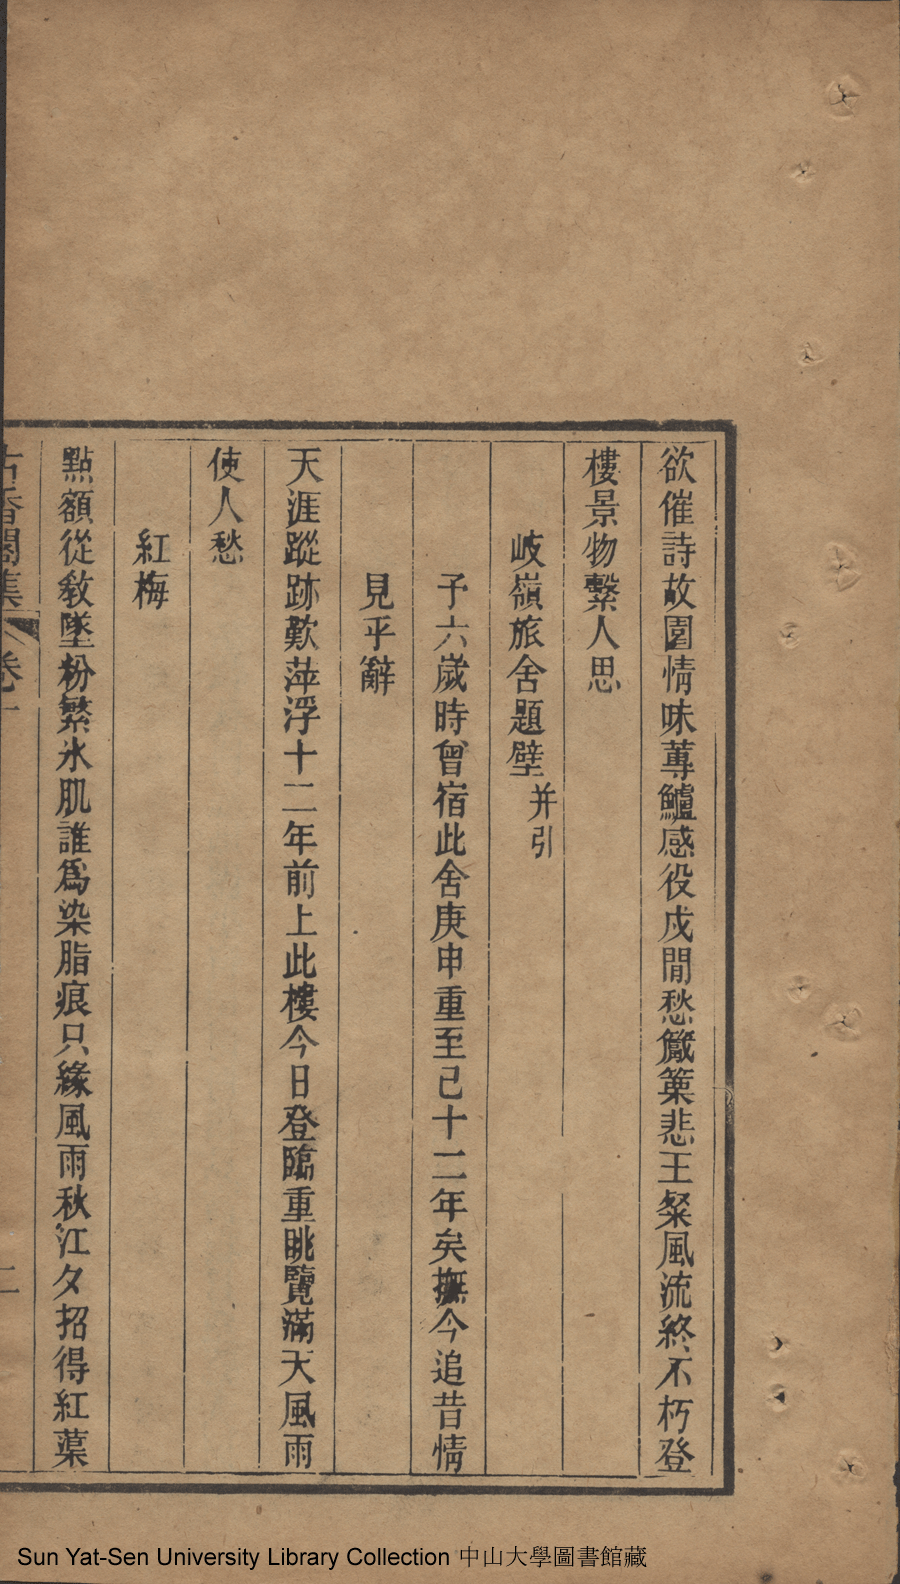 欲催詩故園情味蓴鱸感役戍閒愁觱篥悲王粲風流終不朽登
樓景物繫人思
岐嶺旅舍題壁并引
予六歲時曾宿此舍庚申重至已十二年矣撫今追昔情
見乎辭
天涯蹤跡歎萍浮十二年前上此樓今日登臨重眺覽滿天風雨
使人愁
紅梅
點額從教墜粉繁氷肌誰為染脂痕只緣風雨秋江夕招得紅蕖
古香閣集 卷一 二
Sun Yat-Sen University Library Collection 中山大學圖書館藏